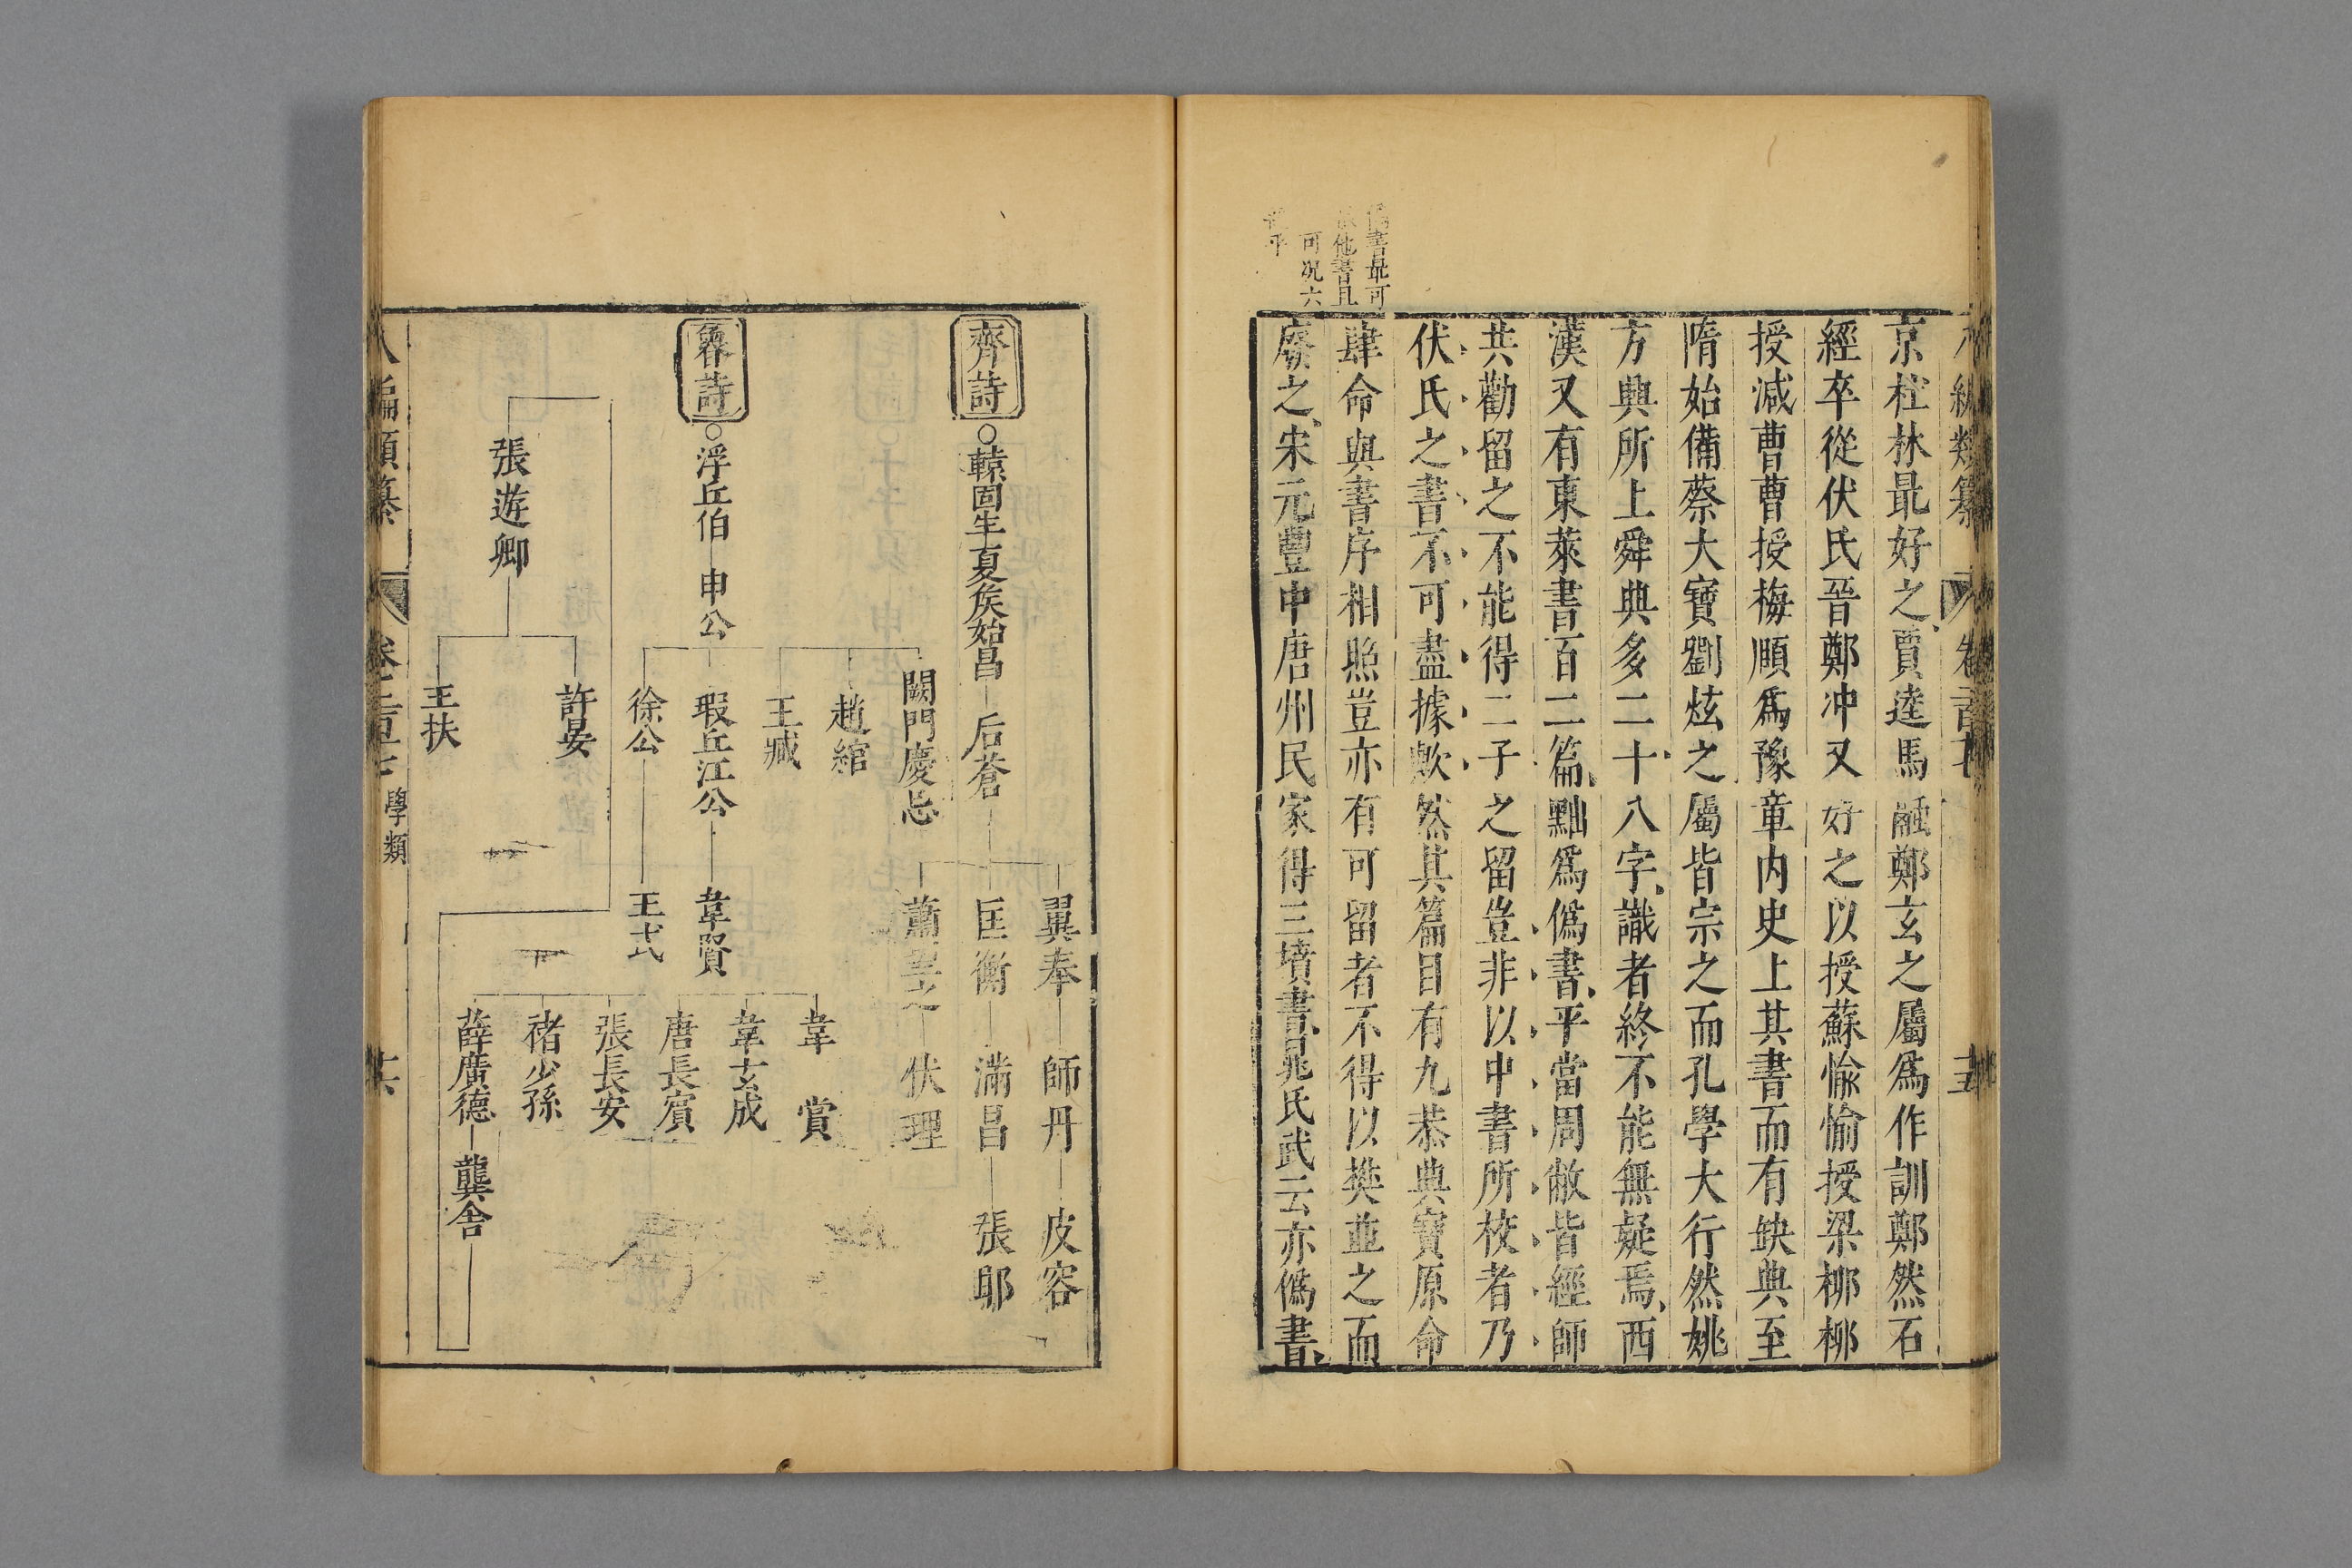 書最可
他書且
可况六
乎
京柱林最好之賈逵馬融鄭玄之屬爲作訓鄭然石
經卒從伏氏晉鄭冲又好之以授蘇愉愉授梁柳柳
授減曹曹授梅頤爲豫章内史上其書而有缺典至
隋始備蔡大寶劉炫之屬皆宗之而孔學大行然姚
方興所上舜典多二十八字識者終不能無疑焉西
漢又有東萊書百二篇黜爲僞書平當周敝皆經師
共勸留之不能得二子之留豈非以中書所校者乃
伏氏之書不可盡據歟然其篇目有九恭典寶原命
肆命與書序相照豈亦有可留者不得以㢡並之而
廢之宋元豐中唐州民家得三墳書晁氏武云亦僞書
齊詩○轅固生 夏侯始昌 后蒼
翼奉 師丹 皮容
匡衡 滿昌 張邯
蕭望之 伏理
魯詩○浮丘伯 申公
闕門慶忌
趙綰
王臧
瑕丘江公 韋賢
徐公 王式
韋賞
韋玄成
唐長賓
張長安
褚少孫
薛廣德 龔舍
張遊卿
許晏
王扶
八編類纂 卷 學類